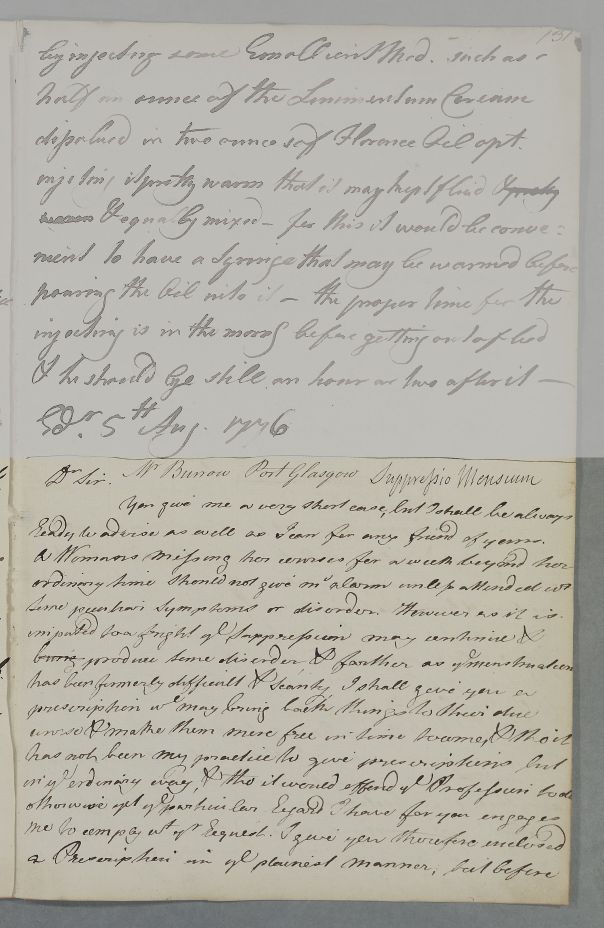 131
by injecting some Emollient Med. such as
half an ounce of the Linimentum Cereum
dissolved in two ounces of Florence Oil opt.
injecting it pretty warm that it may kept fluid & pretty
warm & equally mixed – for this it would be conve=
nient to have a Syringe that may be warmed before
pouring the Oil into it – the proper time for the
injecting is in the morng before getting out of bed
& he should lye still an hour or two after it –
Edr. 5th Aug. 1776
Dr Sir. Mr Burrow Port Glasgow Suppressio Mensium
You give me a very short case, but I shall be always
Ready to advise as well as I can for any friend of yours.
A Womans missing her courses for a week beyond her
ordinary time should not give mh alarm unless attended wt
some peculiar symptoms or disorder. However as it is
imputed to a fright yt Suppression may continue &
produce some disorder, & farther as ye menstruation
has been formerly difficult & scanty, I shall give you a
prescription wh may bring back things to their due
course & make them more free in time to come, & tho it
has not been my practice to give prescriptions but
in ye ordinary way, & tho it would offend ye Profession to do
otherwise yet ye particular Regard I have for you engages
me to comply wt yr Request. I give you therefore enclosed
a Prescription in ye plainest manner, but before